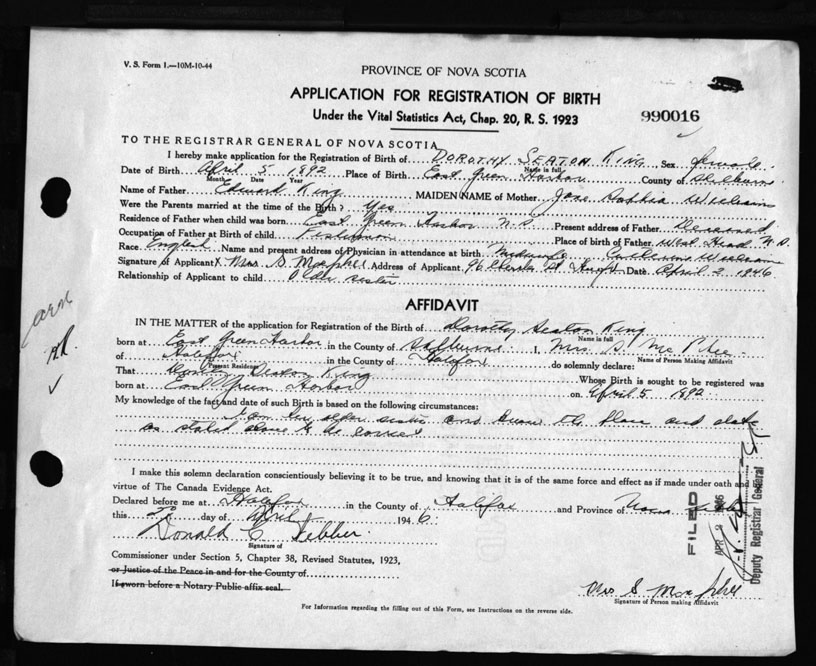 V. S. Form 1.—10M-10-44
PROVINCE OF NOVA SCOTIA
APPLICATION FOR REGISTRATION OF BIRTH
Under the Vital Statistics Act, Chap. 20, R. S. 1923
990016
TO THE REGISTRAR GENERAL OF NOVA SCOTIA
I hereby make application for the Registration of Birth of DOROTHY SEATON KING Sex female
Name in full
Date of Birth April 5 1892 Place of Birth East Green Harbor County of Shelburne
Month Date Year
Name of Father Edward King MAIDEN NAME of Mother Jane Sophia Williams
Were the Parents married at the time of the Birth? Yes
Residence of Father when child was born East Green Harbor N.S. Present address of Father Deceased
Occupation of Father at Birth of child Fisherman Place of Birth of Father West Head N.S.
Race English Name and present address of Physician in attendance at birth Midwife
Signature of Applicant X Mrs S Address of Applicant 96 St Date April 2 1946
Relationship of Applicant to child Older sister
AFFIDAVIT
IN THE MATTER of the application for Registration of the Birth of Dorothy Seaton King
Name in full
born at East Green Harbor in the County of Shelburne I, Mrs S.
Name of Person Making Affidavit
of Halifax in the County of Halifax do solemnly declare:
Present Residence
That Dorothy Seaton King Whose Birth is sought to be registered was
born at East Green Harbor on April 5 1892
My knowledge of the fact and date of such Birth is based on the following circumstances:
I am her older sister and know the place and date
as stated above to be correct
I make this solemn declaration conscientiously believing it to be true, and knowing that it is of the same force and effect as if made under oath and by
virtue of The Canada Evidence Act.
Declared before me at Halifax in the County of Halifax and Province of Nova Scotia
this day of April 1946:
Donald C
Signature of
Commissioner under Section 5, Chapter 38, Revised Statutes, 1923,
or Justice of the Peace in and for the County of
If sworn before a Notary Public affix seal.
Mrs S
Signature of Person making Affidavit
For Information regarding the filling out of this Form, see Instructions on the reverse side.
FILED
APR 2 1946
Deputy Registrar General